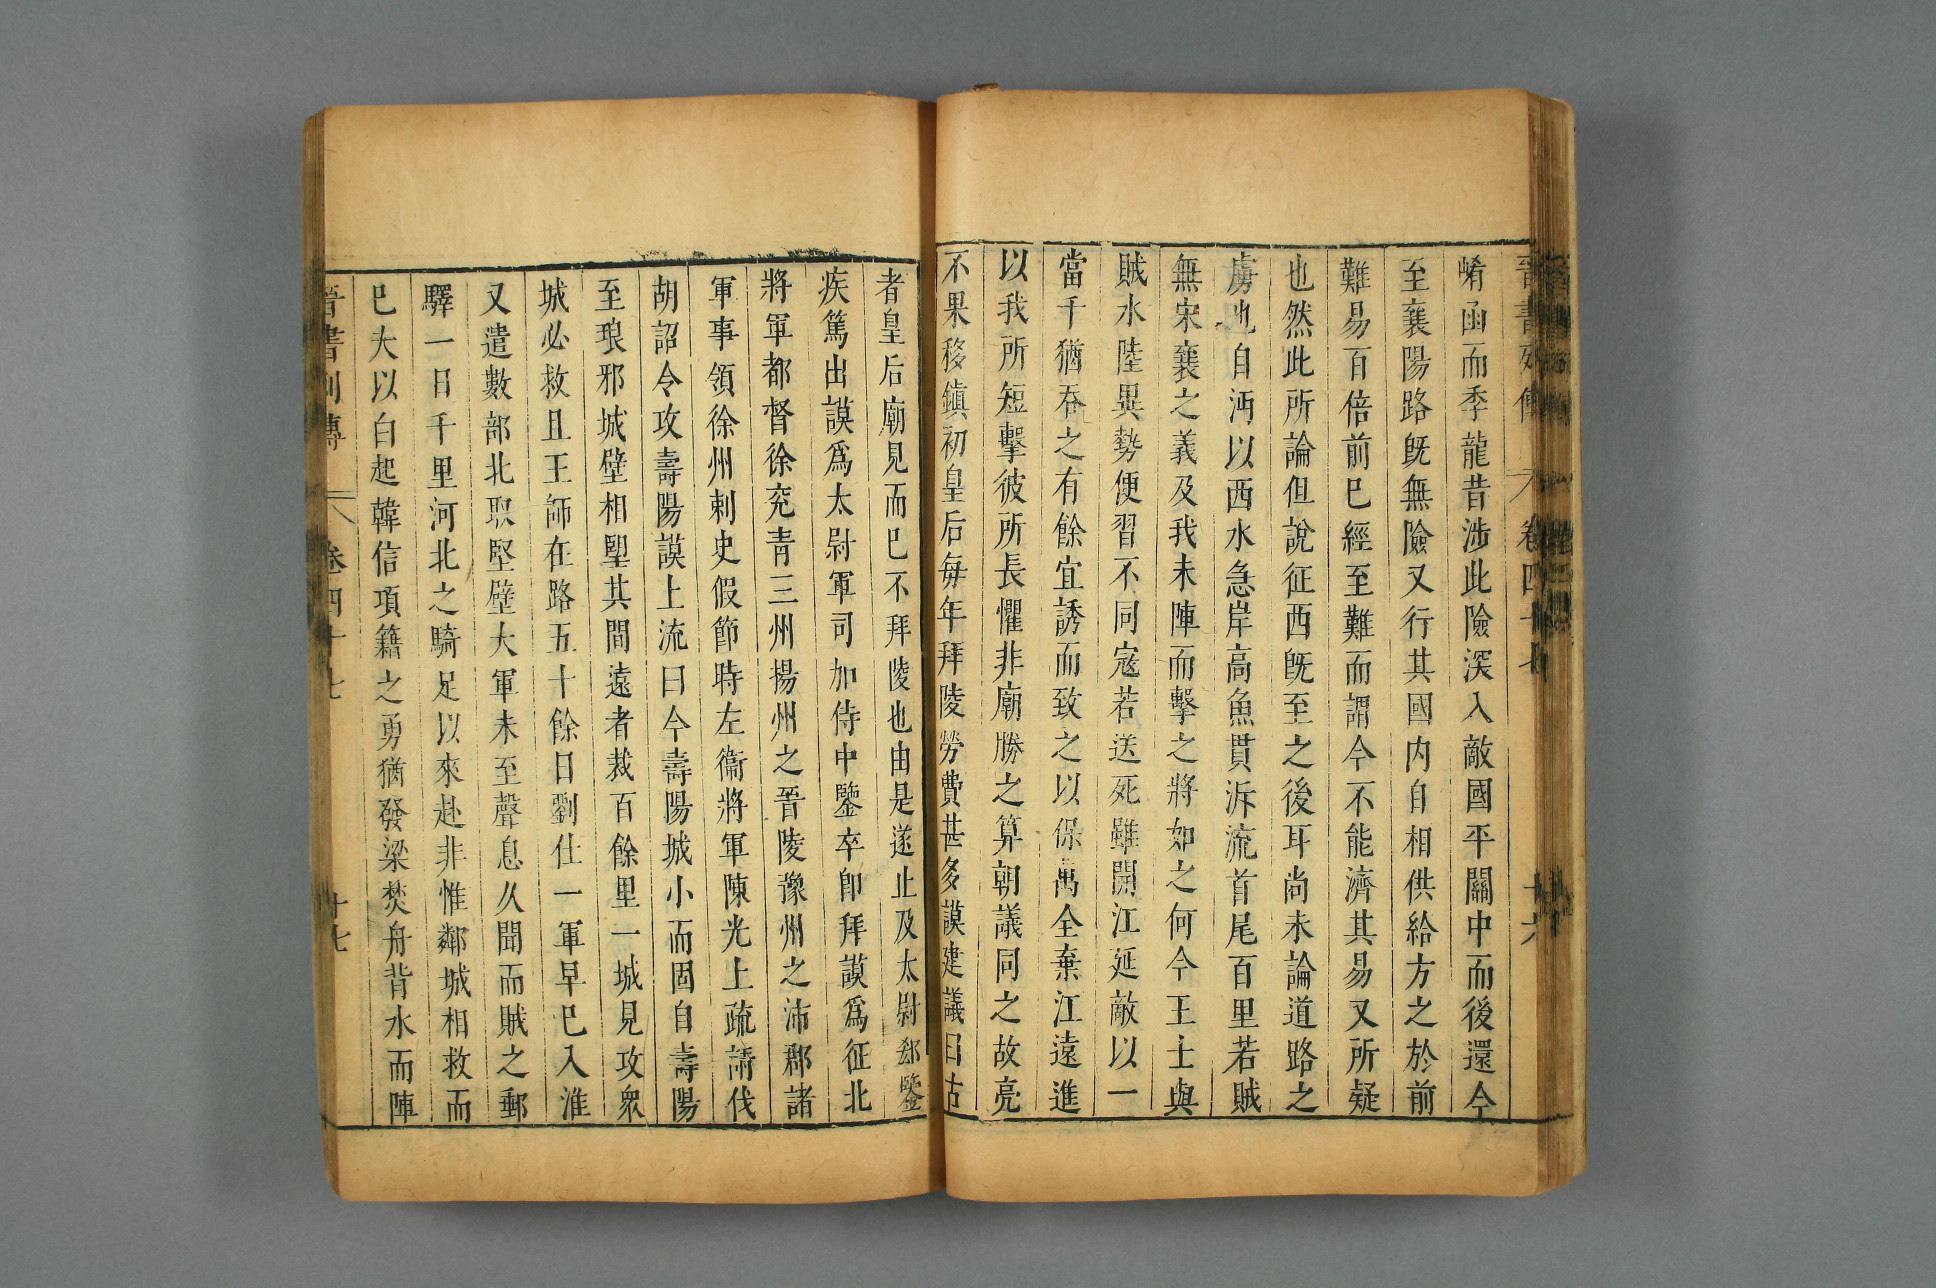 晉書列傳 卷四十七 十六
崤函而季龍昔涉此險深入敵國平關中而後還今
至襄陽路旣無險又行其國内自相供給方之於前
難易百倍前巳經至難而謂今不能濟其易又所疑
也然此所論但說征西旣至之後耳尚未論道路之
虜也自沔以西水急岸高魚貫泝流首尾百里若賊
無宋襄之義及我未陣而擊之將如之何今王士與
賊水陸異勢便習不同寇若送死雖開江延敵以一
當千猶吞之有餘宜誘而致之以保萬全棄江遠進
以我所短擊彼所長懼非廟勝之算朝議同之故亮
不果移鎮初皇后每年拜陵勞費甚多謨建議曰古
者皇后廟見而巳不拜陵也由是遂止及太尉郄鑒
疾篤出謨爲太尉軍司加侍中鑒卒卽拜謨爲征北
將軍都督徐兖青三州揚州之晉陵豫州之沛郡諸
軍事領徐州刺史假節時左衞將軍陳光上疏請伐
胡詔令攻壽陽謨上流曰今壽陽城小而固自壽陽
至琅邪城壁相朢其間遠者裁百餘里一城見攻衆
城必救且王師在路五十餘日劉仕一軍早巳入淮
又遣數部北取堅壁大軍未至聲息久聞而賊之郵
驛一日千里河北之騎足以來赴非惟鄰城相救而
巳夫以白起韓信項籍之勇猶發梁焚舟背水而陣
晉書列傳 卷四十七 十七